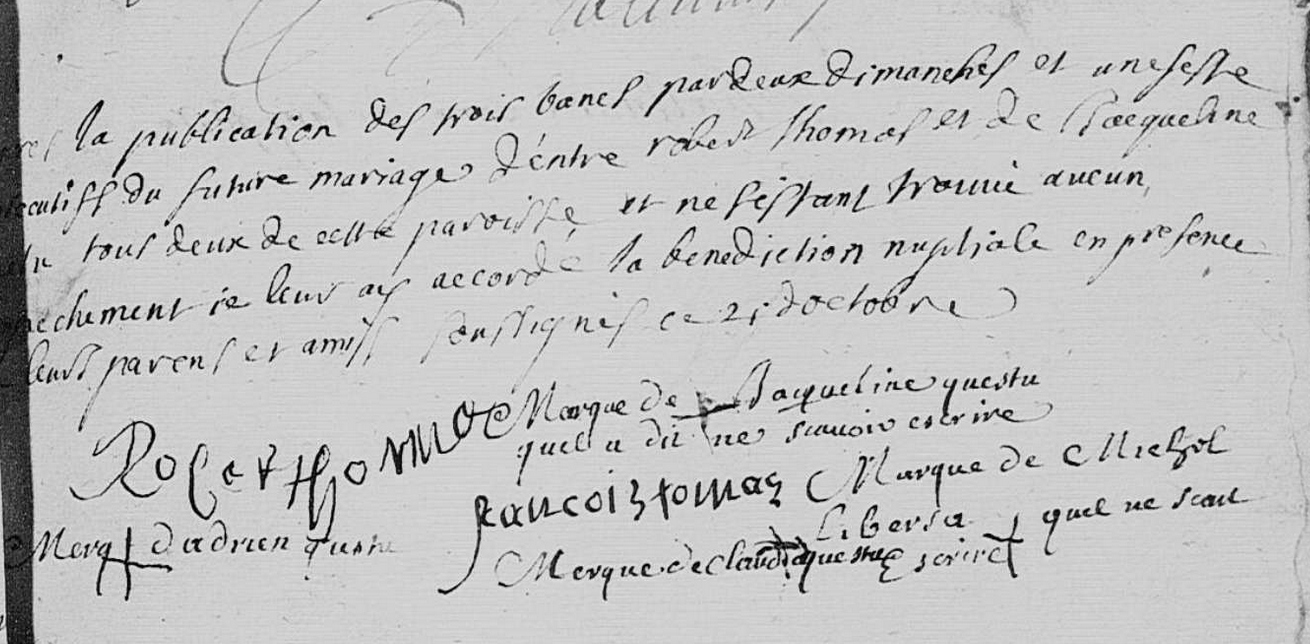 la publication des trois bancs par deux dimanches et une feste
du future mariage d'entre robert thomas et de Jacqueline
tous deux de cette paroisse et ne sestant trouvé aucun
echement ie leur ay accordé la benediction nuptiale en presence
leurs parens et amiss soussignés ce 21 d'octobre
Robert thomas Marque de Jacqueline questu
quel a dit ne scauoir escrire
francois tomas Marque de Michel
Merq d'adrien questu Libersa quel ne scait
Merque de Claude questu escrire